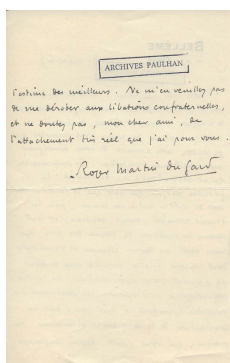 ARCHIVES PAULHAN
l'estime des meilleurs. Ne m'en veuillez pas
de me dérober aux libations confraternelles,
et ne doutez pas, mon cher ami, de
l'attachement très réel que j'ai pour vous.
Roger Martin du Gard